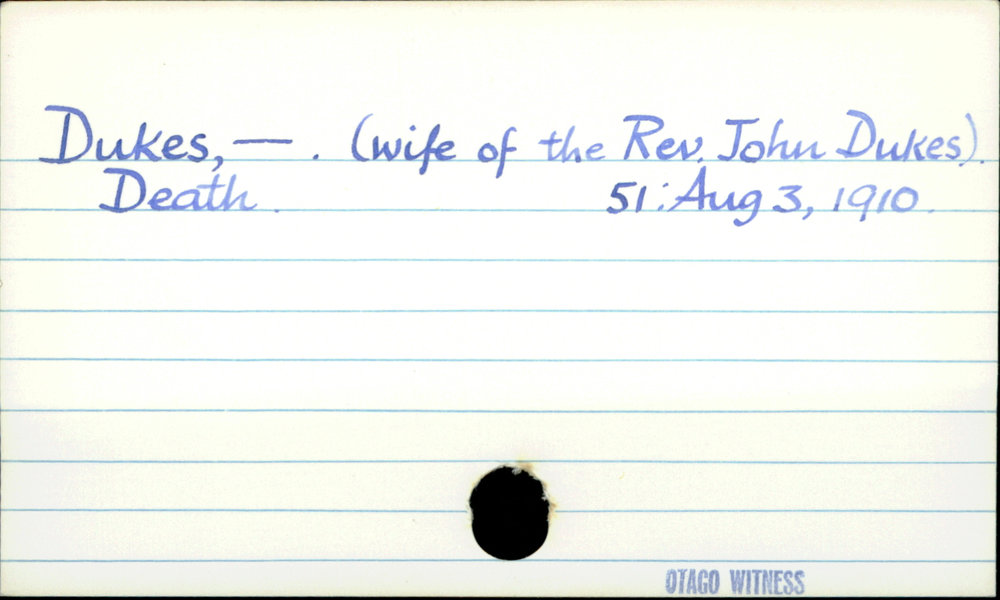 Dukes, — . (wife of the Rev. John Dukes).
Death. 51: Aug 3, 1910.
OTAGO WITNESS